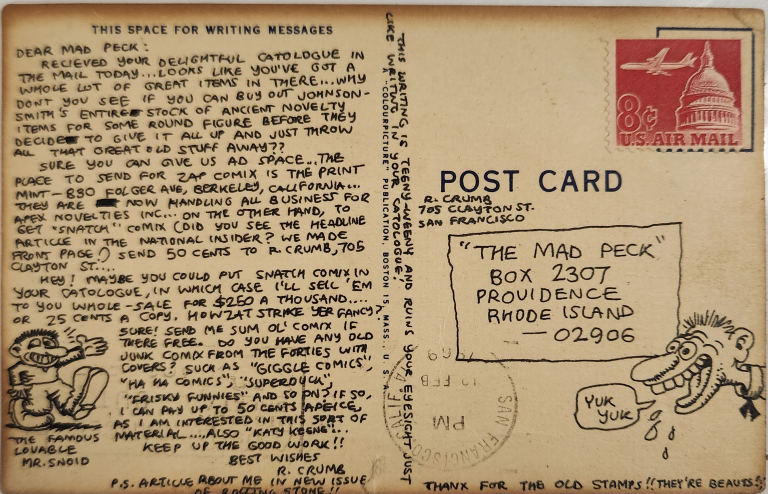 THIS SPACE FOR WRITING MESSAGES
DEAR MAD PECK:
RECIEVED YOUR DELIGHTFUL CATOLOGUE IN
THE MAIL TODAY...LOOKS LIKE YOU'VE GOT A
WHOLE LOT OF GREAT ITEMS IN THERE...WHY
DONT YOU SEE IF YOU CAN BUY OUT JOHNSON-
SMITH'S ENTIRE STOCK OF ANCIENT NOVELTY
ITEMS FOR SOME ROUND FIGURE BEFORE THEY
DECIDE TO GIVE IT ALL UP AND JUST THROW
ALL THAT GREAT OLD STUFF AWAY??
SURE YOU CAN GIVE US AD SPACE...THE
PLACE TO SEND FOR ZAP COMIX IS THE PRINT
MINT-830 FOLGER AVE, BERKELEY, CALIFORNIA...
THEY ARE NOW HANDLING ALL BUSINESS FOR
APEX NOVELTIES INC... ON THE OTHER HAND, TO
GET "SNATCH" COMIX (DID YOU SEE THE HEADLINE
ARTICLE IN THE NATIONAL INSIDER? WE MADE
FRONT PAGE!) SEND 50 CENTS TO R. CRUMB, 705
CLAYTON ST....
HEY! MAYBE YOU COULD PUT SNATCH COMIX IN
YOUR CATOLOGUE, IN WHICH CASE I'LL SELL 'EM
TO YOU WHOLE-SALE FOR $250 A THOUSAND....
OR 25 CENTS A COPY. HOWZAT STRIKE YER FANCY?
SURE! SEND ME SUM OL' COMIX IF
THERE FREE. DO YOU HAVE ANY OLD
JUNK COMIX FROM THE FORTIES WITH
COVERS? SUCH AS "GIGGLE COMICS",
"HA HA COMICS", "SUPERDUCK",
"FRISKY FUNNIES" AND SO ON? IF SO,
I CAN PAY UP TO 50 CENTS APEICE,
AS I AM INTERESTED IN THIS SORT OF
MATERIAL....ALSO "KATY KEENE"...
KEEP UP THE GOOD WORK!!
BEST WISHES
R. CRUMB
P.S. ARTICLE ABOUT ME IN NEW ISSUE
OF ROLLING STONE!!
THE FAMOUS
LOVABLE
MR. SNOID
THIS WRITING IS TEENY-WEENY AND RUINS YOUR EYESIGHT JUST
LIKE WRITING IN YOUR CATOLOGUE!
A "COLOURPICTURE" PUBLICATION, BOSTON 15, MASS., U.S.A.
8¢
U.S. AIR MAIL
POST CARD
R. CRUMB
705 CLAYTON ST.
SAN FRANCISCO
"THE MAD PECK"
BOX 2307
PROVIDENCE
RHODE ISLAND
—02906
SAN FRANCISCO CALIF
PM
FEB
YUK
YUK
THANX FOR THE OLD STAMPS!! THEY'RE BEAUTS!!